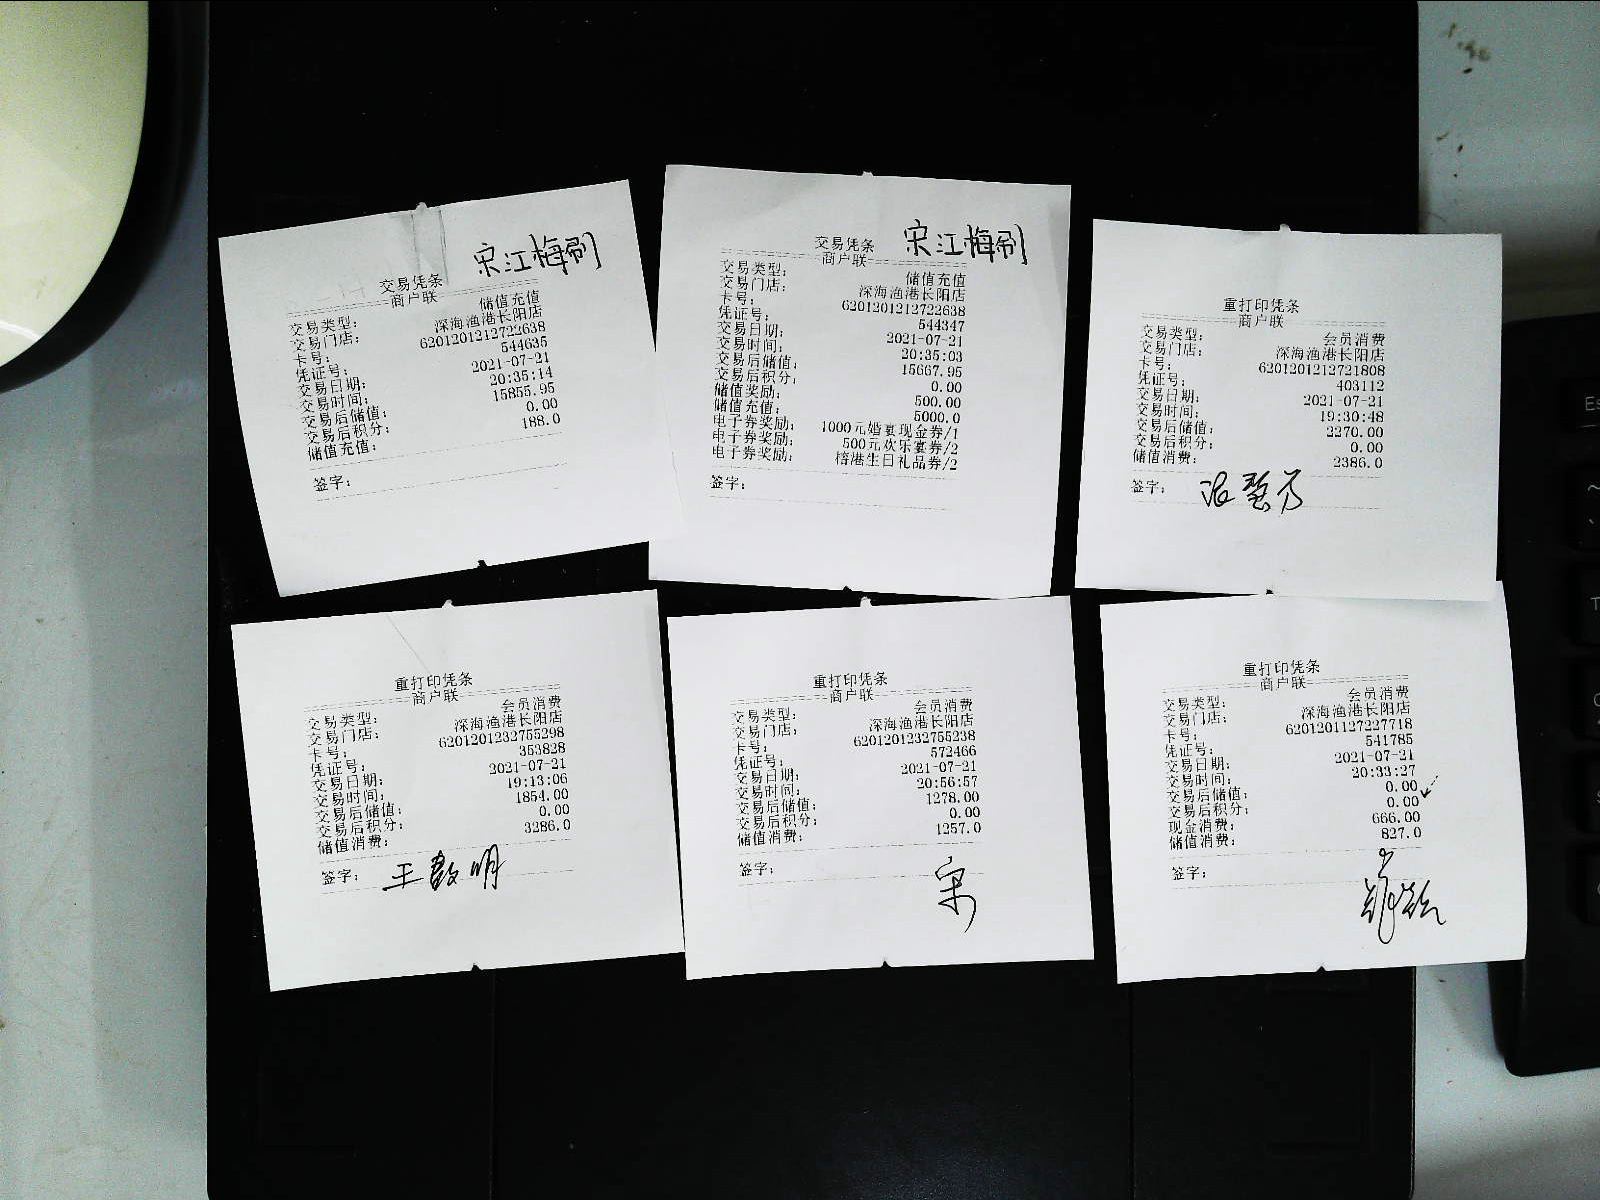 宋江梅刷
交易凭条
商户联
交易类型： 储值充值
交易门店： 深海渔港长阳店
卡号： 6201201212722638
凭证号： 544635
交易日期： 2021-07-21
交易时间： 20:35:14
交易后储值： 15855.95
交易后积分： 0.00
储值充值： 188.0
签字：
宋江梅刷
交易凭条
商户联
交易类型： 储值充值
交易门店： 深海渔港长阳店
卡号： 6201201212722638
凭证号： 544347
交易日期： 2021-07-21
交易时间： 20:35:03
交易后储值： 15667.95
交易后积分： 0.00
储值奖励： 500.00
储值充值： 5000.0
电子券奖励： 1000元婚宴现金券/1
电子券奖励： 500元欢乐宴券/2
电子券奖励： 榕港生日礼品券/2
签字：
重打印凭条
商户联
交易类型： 会员消费
交易门店： 深海渔港长阳店
卡号： 6201201212721808
凭证号： 403112
交易日期： 2021-07-21
交易时间： 19:30:48
交易后储值： 2270.00
交易后积分： 0.00
储值消费： 2386.0
签字：
重打印凭条
商户联
交易类型： 会员消费
交易门店： 深海渔港长阳店
卡号： 6201201232755298
凭证号： 353828
交易日期： 2021-07-21
交易时间： 19:13:06
交易后储值： 1854.00
交易后积分： 0.00
储值消费： 3286.0
签字： 王
明
重打印凭条
商户联
交易类型： 会员消费
交易门店： 深海渔港长阳店
卡号： 6201201232755238
凭证号： 572466
交易日期： 2021-07-21
交易时间： 20:56:57
交易后储值： 1278.00
交易后积分： 0.00
储值消费： 1257.0
签字： 宋
重打印凭条
商户联
交易类型： 会员消费
交易门店： 深海渔港长阳店
卡号： 6201201127227718
凭证号： 541785
交易日期： 2021-07-21
交易时间： 20:33:27
交易后储值： 0.00
交易后积分： 0.00
现金消费： 666.00
储值消费： 827.0
签字：